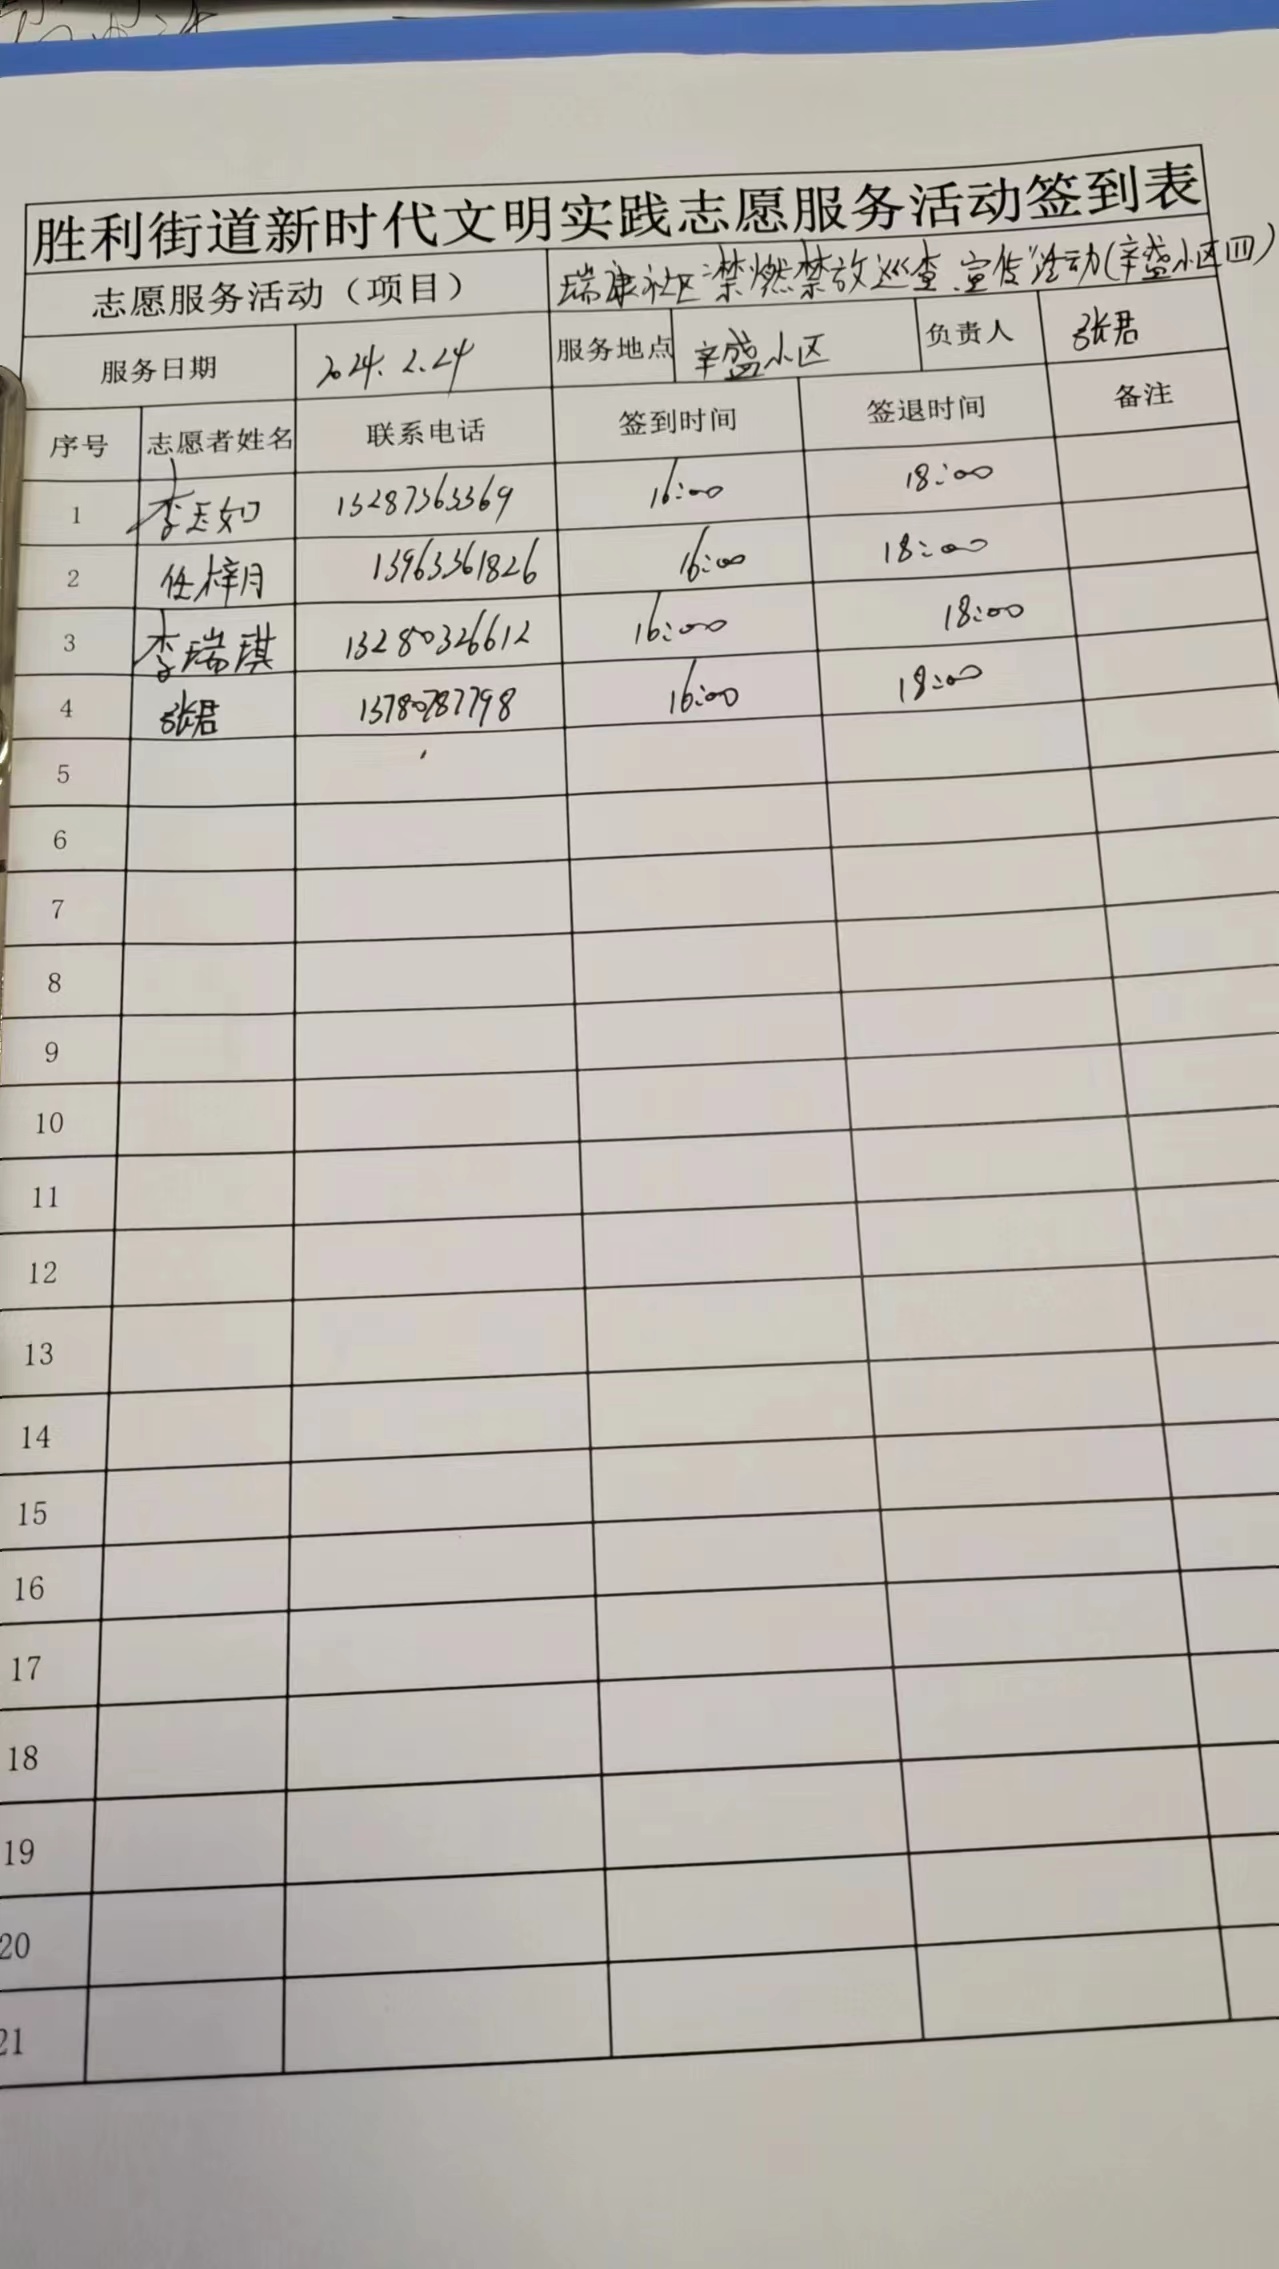 胜利街道新时代文明实践志愿服务活动签到表
志愿服务活动（项目） 瑞康社区"禁燃禁放巡查、宣传"活动(辛盛小区四)
服务日期 2024.2.24 服务地点 辛盛小区 负责人 张君
序号 志愿者姓名 联系电话 签到时间 签退时间 备注
1 李玉如 13287363369 16:00 18:00
2 任梓月 13963361826 16:00 18:00
3 李瑞琪 13280326612 16:00 18:00
4 张君 13780787798 16:00 18:00
5
6
7
8
9
10
11
12
13
14
15
16
17
18
19
20
21